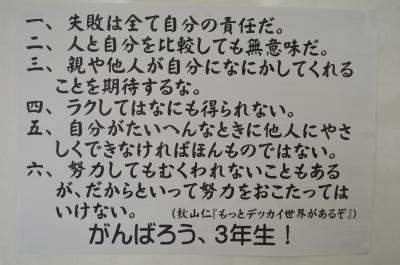 一、失敗は全て自分の責任だ。
二、人と自分を比較しても無意味だ。
三、親や他人が自分になにかしてくれる
ことを期待するな。
四、ラクしてはなにも得られない。
五、自分がたいへんなときに他人にやさ
しくできなければほんものではない。
六、努力してもむくわれないこともある
が、だからといって努力をおこたっては
いけない。（秋山仁『もっとデッカイ世界があるぞ』）
がんばろう、3年生！